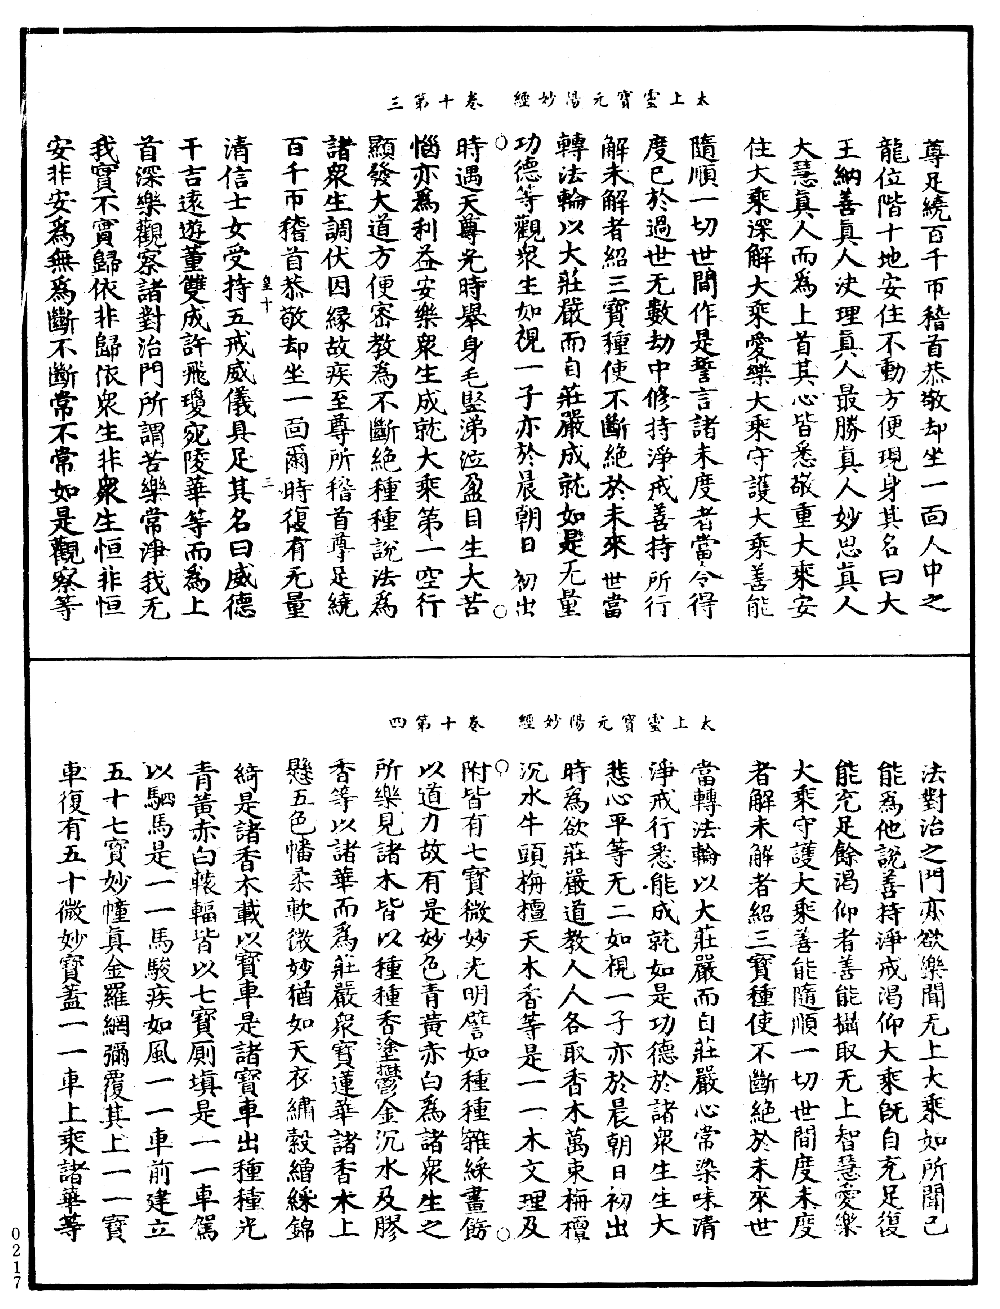 太上靈寶元陽妙經　卷十第三
尊足繞百千帀稽首恭敬却坐一面人中之
龍位階十地安住不動方便現身其名曰大
王納善真人決理真人最勝真人妙思真人
大慧真人而爲上首其心皆悉敬重大乘安
住大乘深解大乘愛樂大乘守護大乘善能
隨順一切世間作是誓言諸未度者當令得
度已於過世无數劫中修持淨戒善持所行
解未解者紹三寶種使不斷絕於未來世當
轉法輪以大莊嚴而自莊嚴成就如是无量
功德等觀衆生如視一子亦於晨朝日初出
時遇天尊光時舉身毛竪涕泣盈目生大苦
惱亦爲利益安樂衆生成就大乘第一空行
顯發大道方便密教為不斷絕種種說法爲
諸衆生調伏因緣故疾至尊所稽首尊足繞
百千帀稽首恭敬却坐一面爾時復有无量
皇十　三
清信士女受持五戒威儀具足其名曰威德
干吉遠遊董雙成許飛瓊宛陵華等而爲上
首深樂觀察諸對治門所謂苦樂常淨我无
我實不實歸依非歸依衆生非衆生恒非恒
安非安爲無爲斷不斷常不常如是觀察等
太上靈寶元陽妙經　卷十第四
法對治之門亦欲樂聞无上大乘如所聞已
能爲他說善持淨戒渴仰大乘旣自充足復
能充足餘渴仰者善能攝取无上智慧愛樂
大乘守護大乘善能隨順一切世間度未度
者解未解者紹三寶種使不斷絕於未來世
當轉法輪以大莊嚴而自莊嚴心常染味清
淨戒行悉能成就如是功德於諸衆生生大
悲心平等无二如視一子亦於晨朝日初出
時爲欲莊嚴道教人人各取香木萬束栴檀
沉水牛頭栴檀天木香等是一一木文理及
附皆有七寶微妙光明譬如種種雜綵畫飾
以道力故有是妙色青黄赤白爲諸衆生之
所樂見諸木皆以種種香塗鬱金沉水及膠
香等以諸華而爲莊嚴衆寶蓮華諸香木上
懸五色幡柔軟微妙猶如天衣繡縠繒綵錦
綺是諸香木載以寶車是諸寶車出種種光
青黄赤白轅輻皆以七寶厠填是一一車駕
以駟馬是一一馬駿疾如風一一車前建立
五十七寶妙幢真金羅網彌覆其上一一寶
車復有五十微妙寶蓋一一車上乘諸華等
0217